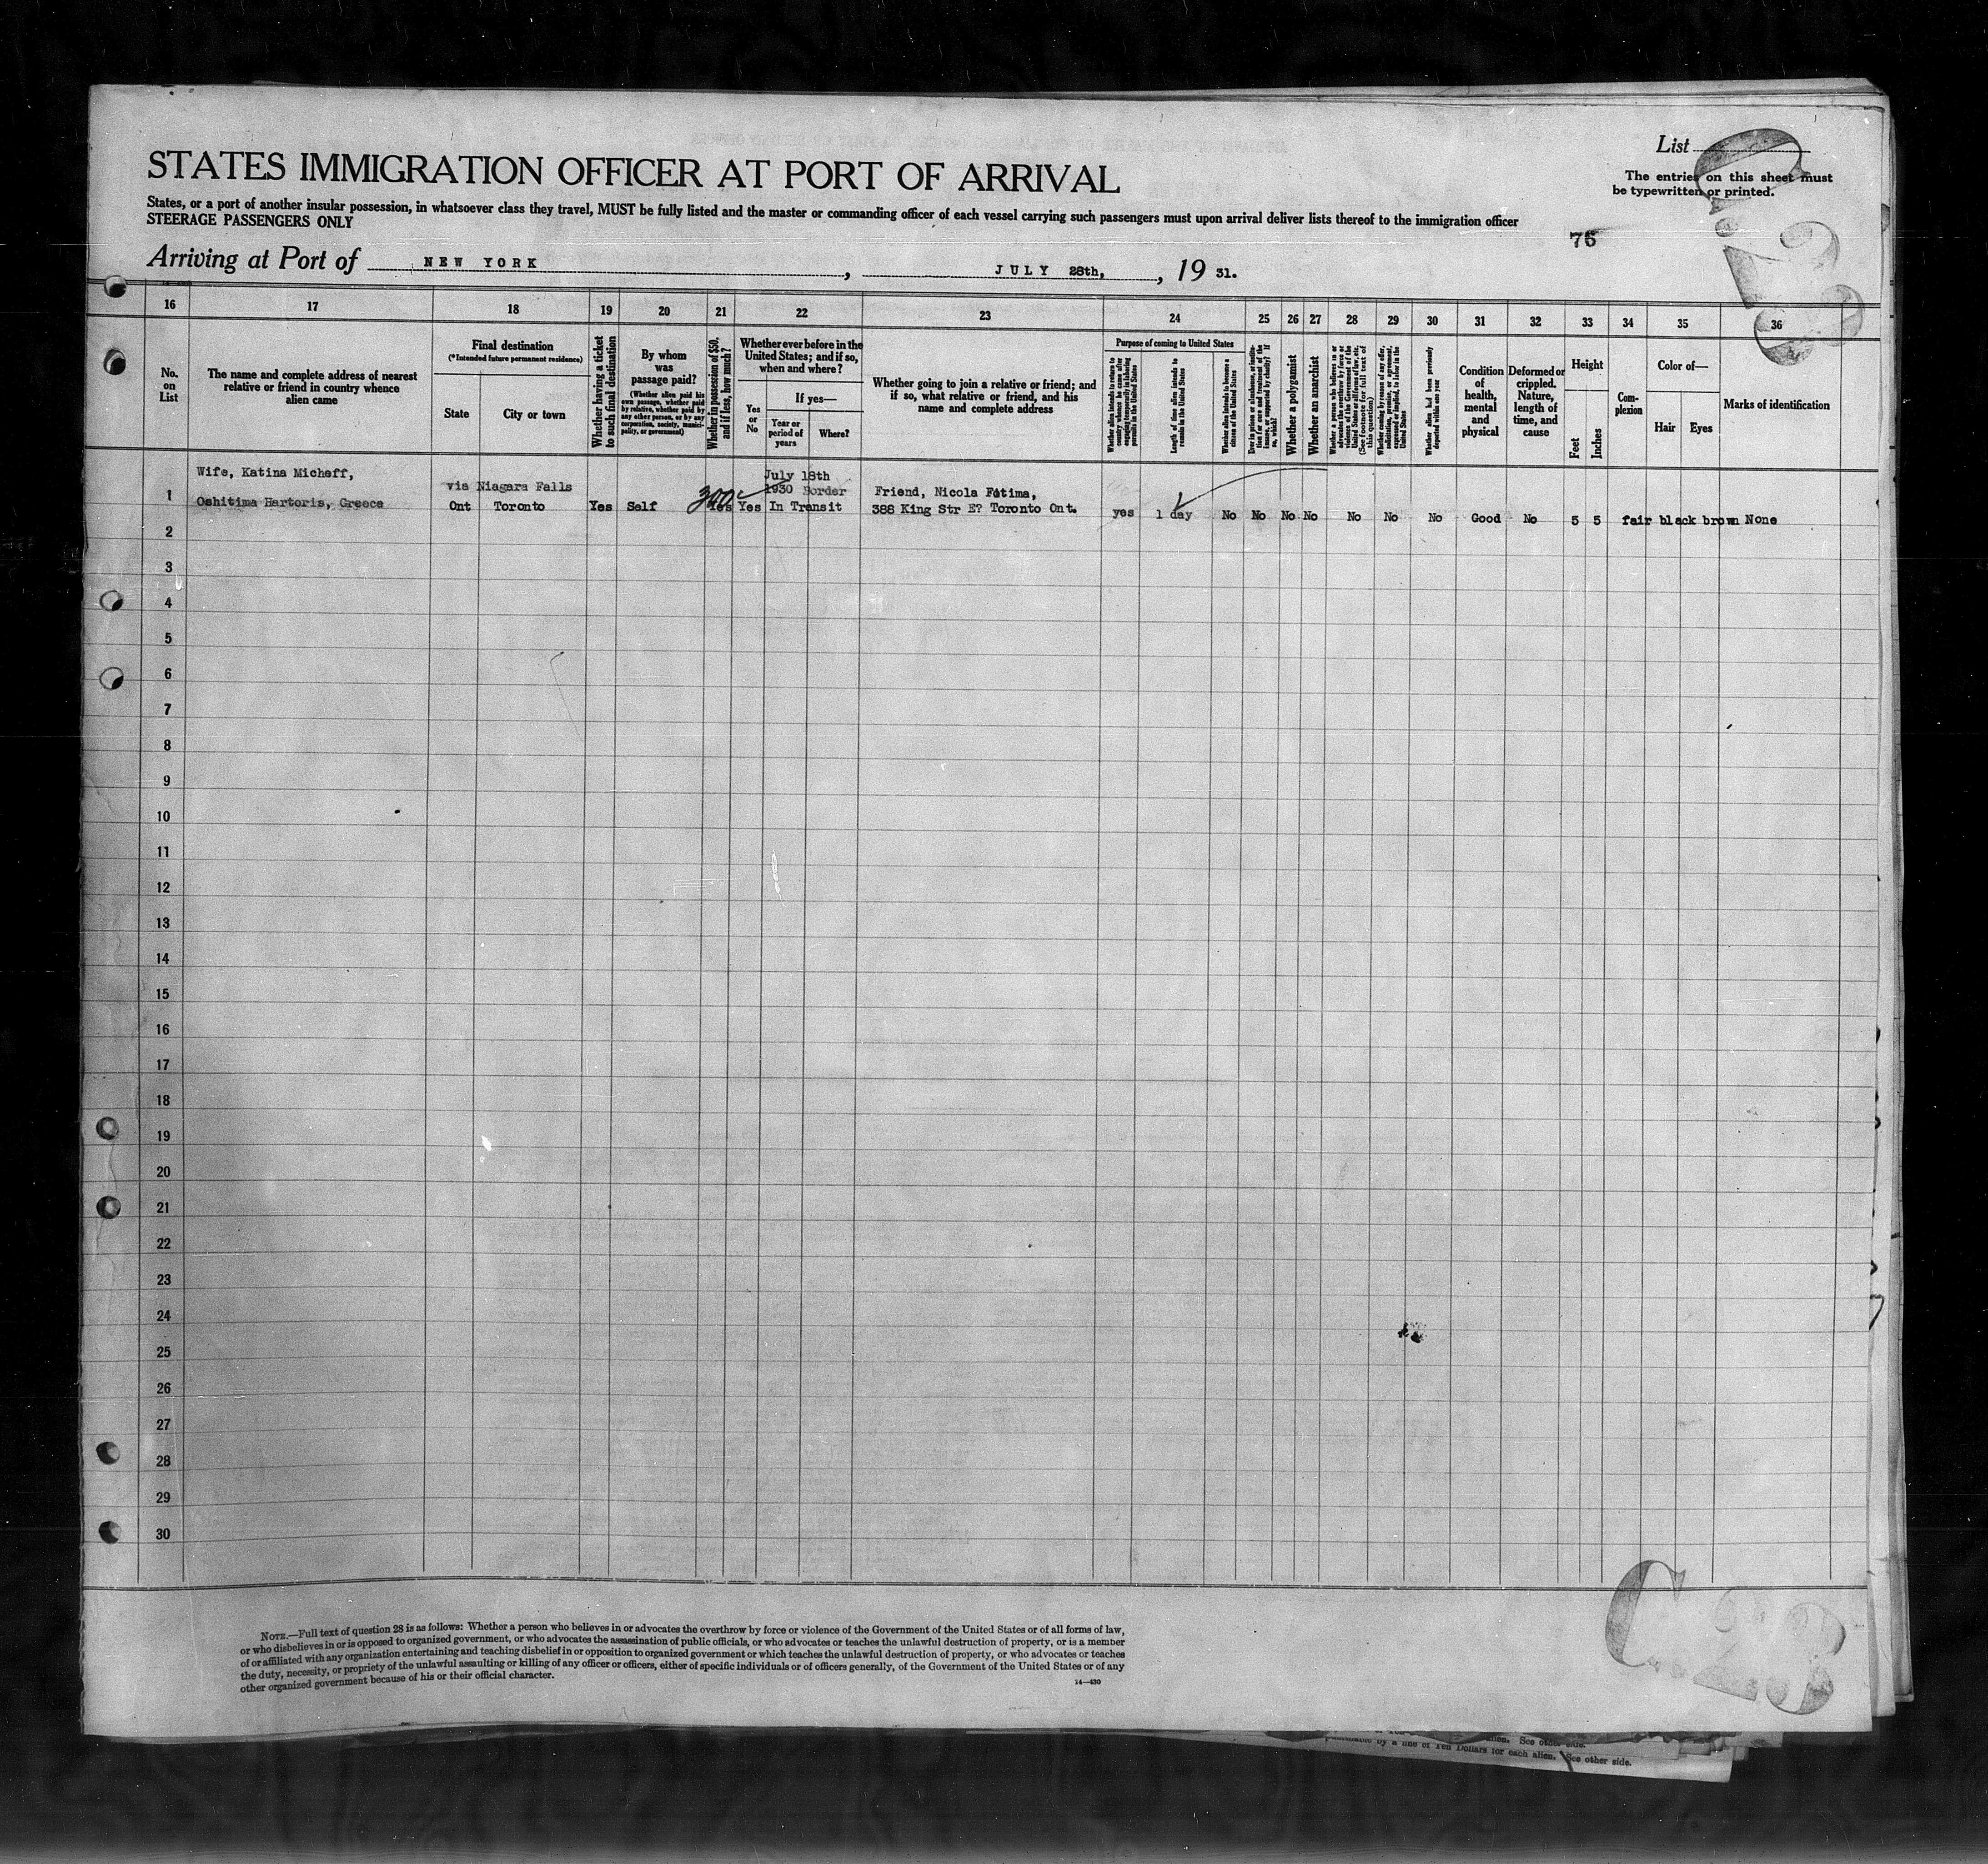 List
STATES IMMIGRATION OFFICER AT PORT OF ARRIVAL
The entries on this sheet must
be typewritten or printed.
States, or a port of another insular possession, in whatsoever class they travel, MUST be fully listed and the master or commanding officer of each vessel carrying such passengers must upon arrival deliver lists thereof to the immigration officer
STEERAGE PASSENGERS ONLY
76
Arriving at Port of NEW YORK, JULY 28th, , 19 31.
16 17 18 19 20 21 22 23 24 25 26 27 28 29 30 31 32 33 34 35 36
No.
on
List
The name and complete address of nearest
relative or friend in country whence
alien came
Final destination
(*Intended future permanent residence)
State
City or town
Whether having a ticket
to such final destination
By whom
was
passage paid?
(Whether alien paid his
own passage, whether paid
by relative, whether paid by
any other person, or by any
corporation, society, munici-
pality, or government)
Whether in possession of $50,
and if less, how much?
Whether ever before in the
United States; and if so,
when and where?
Yes
or
No
If yes—
Year or
period of
years
Where?
Whether going to join a relative or friend; and
if so, what relative or friend, and his
name and complete address
Purpose of coming to United States
Whether alien intends to return to
country whence he came after
engaging temporarily in laboring
pursuits in the United States
Length of time alien intends to
remain in the United States
Whether alien intends to become a
citizen of the United States
Whether a polygamist
Whether an anarchist
Whether alien had been previously
deported within one year
Condition
of
health,
mental
and
physical
Deformed or
crippled.
Nature,
length of
time, and
cause
Height
Feet
Inches
Com-
plexion
Color of—
Hair
Eyes
Marks of identification
Wife, Katina Micheff,
via Niagara Falls
July 18th
1930 Border
Friend, Nicola Fotima,
1 Oshitima Hartoris, Greece Ont Toronto Yes Self 300 Yes Yes In Transit 388 King Str E? Toronto Ont. yes 1 day No No No No No No No Good No 5 5 fair black brown None
2
3
4
5
6
7
8
9
10
11
12
13
14
15
16
17
18
19
20
21
22
23
24
25
26
27
28
29
30
NOTE.—Full text of question 28 is as follows: Whether a person who believes in or advocates the overthrow by force or violence of the Government of the United States or of all forms of law,
or who disbelieves in or is opposed to organized government, or who advocates the assassination of public officials, or who advocates or teaches the unlawful destruction of property, or is a member
of or affiliated with any organization entertaining and teaching disbelief in or opposition to organized government or which teaches the unlawful destruction of property, or who advocates or teaches
the duty, necessity, or propriety of the unlawful assaulting or killing of any officer or officers, either of specific individuals or of officers generally, of the Government of the United States or of any
other organized government because of his or their official character.
14—430
C.23
alien. See other side.
by a fine of Ten Dollars for each alien. See other side.